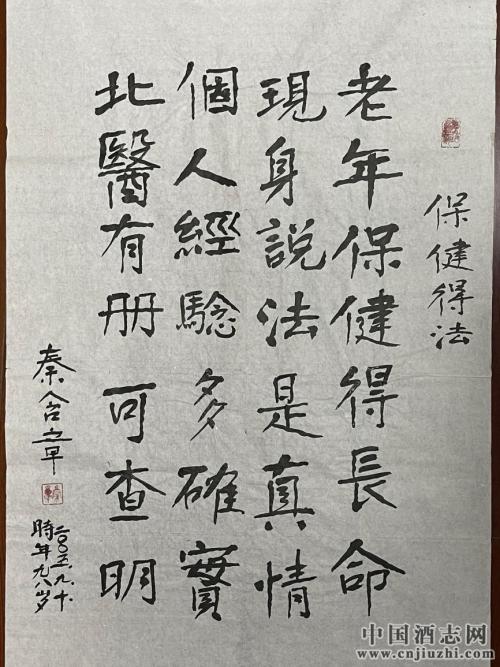 保健得法
老年保健得長命
現身說法是真情
個人經驗多確實
北醫有册可查明
秦含章
二〇〇五.九.十
時年九八岁
中国酒志网
www.cnjiuzhi.com